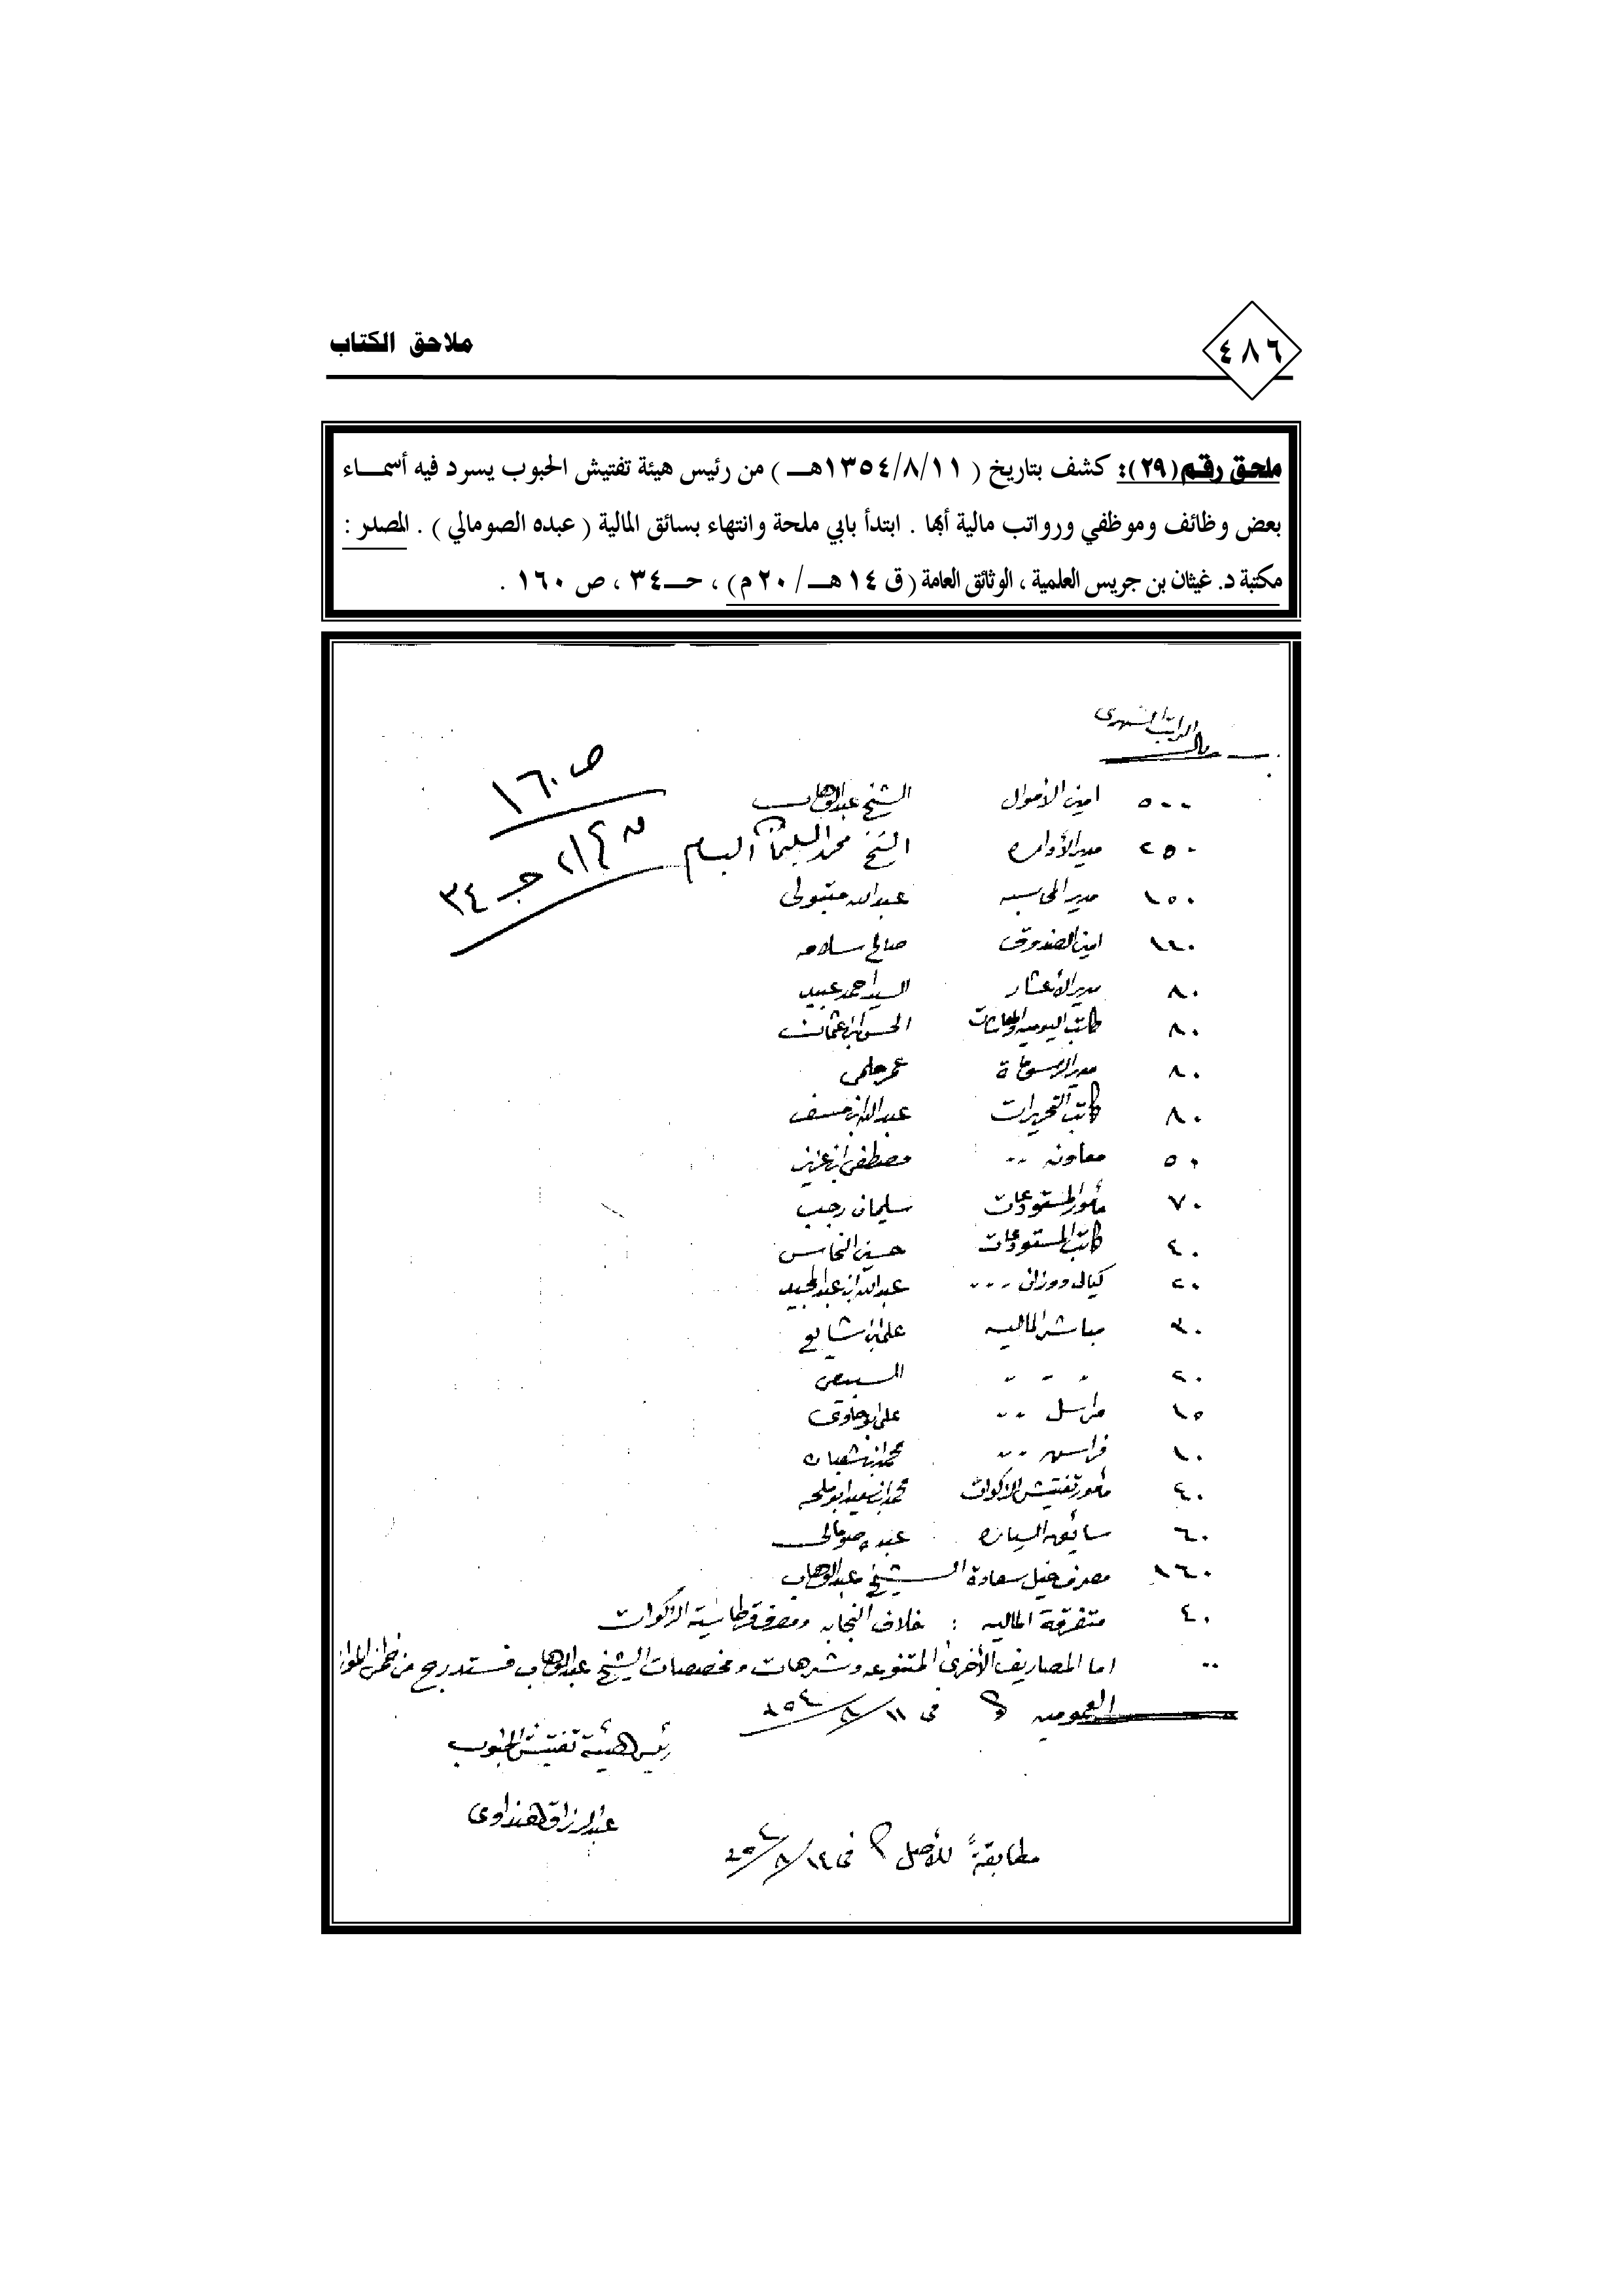 ملاحق الكتاب
٤٨٦
ملحق رقم (٢٩): كشف بتاريخ ( ١٣٥٤/٨/١١هـ ) من رئيس هيئة تفتيش الحبوب يسرد فيه أسماء
بعض وظائف وموظفي ورواتب مالية أبها . ابتدأ بابي ملحة وانتهاء بسائق المالية ( عبده الصومالي ) . المصدر :
مكتبة د. غيثان بن جريس العلمية ، الوثائق العامة (ق ١٤ هـ / ٢٠ م) ، جـ٣٤ ، ص ١٦٠ .
الراتب الشهري
ريال
ص ١٦٠
جـ ٣٤
٥٠٠ امين الأموال الشيخ عبدالوهاب
٢٥٠ مدير الأداره الشيخ محمد السليمان البسام
١٥٠ مدير المحاسبه عبدالله متبولى
امين الصندوق صالح سلامه
٨٠ مدير الأعشار السيد احمد عبيد
٨٠ كاتب اليوميه الحسن ابن عثمان
٨٠ مدير عمر حلمى
٨٠ كاتب التحريرات عبدالله ابن مسفر
٥٠ معاونه ٠٠ مصطفى ابن عزيز
٧٠ مأمور المستودعات سليمان رجب
٤٠ كاتب المستودعات حسين النحاس
٢٠ كيال ووزان ٠٠٠ عبدالله ابن عبدالمجيد
٣٠ مباشر الماليه على ابن شايع
٢٠ ٠ ٠ ٠ السبيعى
١٥ مراسل ٠٠ على
١٠ فراش ٠٠ محمد ابن شعبان
٤٠ مأمور تفتيش الزكوات محمد ابن سعيد ابو ملحه
٦٠ سائق السياره عبده صومالى
١٦٠ مصرف خيل سعادة الشيخ عبدالوهاب
٤٠ متفرقة الماليه : خلاف النجابه ومصرف قرطاسية الزكوات
٠٠ اما المصاريف الأخرى المتنوعه وشرهات ومخصصات الشيخ عبدالوهاب فستدرج من ضمن
العموميه فى ١١/٨/٣٥٤
رئيس هيئة تفتيش الحبوب
عبدالرزاق هنداوى
مطابقة للأصل فى ١٤/٨/٣٥٤